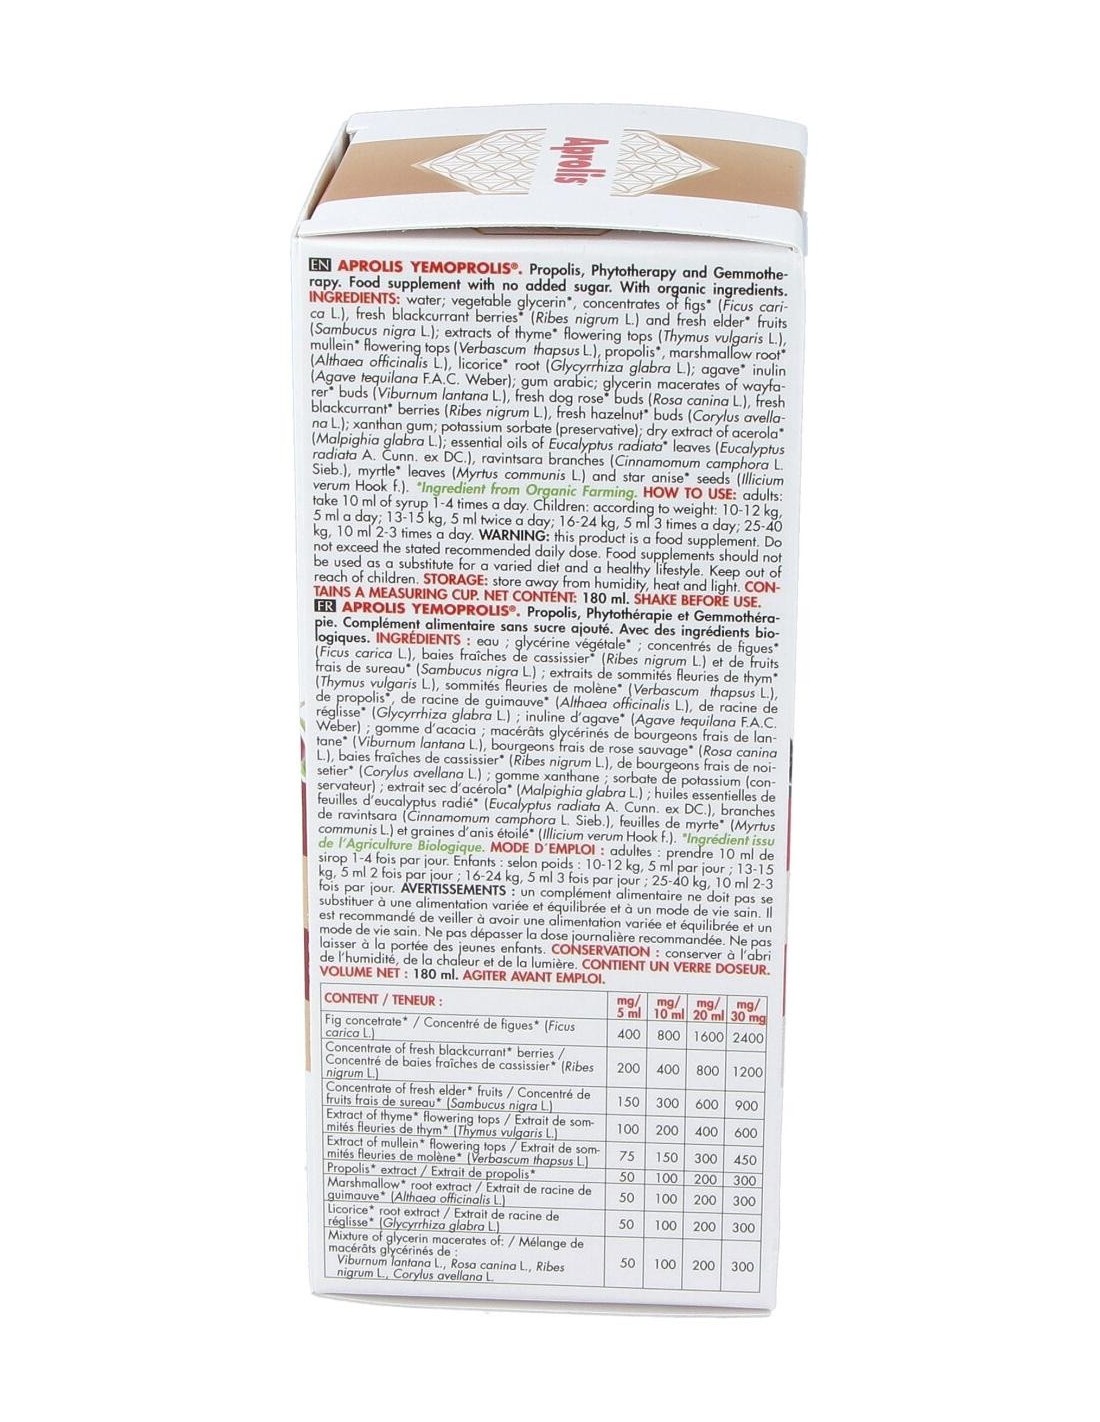 Aprolis
EN APROLIS YEMOPROLIS®. Propolis, Phytotherapy and Gemmothe-
rapy. Food supplement with no added sugar. With organic ingredients.
INGREDIENTS: water; vegetable glycerin*, concentrates of figs* (Ficus cari-
ca L.), fresh blackcurrant berries* (Ribes nigrum L.) and fresh elder* fruits
(Sambucus nigra L.); extracts of thyme* flowering tops (Thymus vulgaris L.),
mullein* flowering tops (Verbascum thapsus L.), propolis*, marshmallow root*
(Althaea officinalis L.), licorice* root (Glycyrrhiza glabra L.); agave* inulin
(Agave tequilana F.A.C. Weber); gum arabic; glycerin macerates of wayfa-
rer* buds (Viburnum lantana L.), fresh dog rose* buds (Rosa canina L.), fresh
blackcurrant* berries (Ribes nigrum L.), fresh hazelnut* buds (Corylus avella-
na L.); xanthan gum; potassium sorbate (preservative); dry extract of acerola*
(Malpighia glabra L.); essential oils of Eucalyptus radiata* leaves (Eucalyptus
radiata A. Cunn. ex DC.), ravintsara branches (Cinnamomum camphora L.
Sieb.), myrtle* leaves (Myrtus communis L.) and star anise* seeds (Illicium
verum Hook f.). *Ingredient from Organic Farming. HOW TO USE: adults:
take 10 ml of syrup 1-4 times a day. Children: according to weight: 10-12 kg,
5 ml a day; 13-15 kg, 5 ml twice a day; 16-24 kg, 5 ml 3 times a day; 25-40
kg, 10 ml 2-3 times a day. WARNING: this product is a food supplement. Do
not exceed the stated recommended daily dose. Food supplements should not
be used as a substitute for a varied diet and a healthy lifestyle. Keep out of
reach of children. STORAGE: store away from humidity, heat and light. CON-
TAINS A MEASURING CUP. NET CONTENT: 180 ml. SHAKE BEFORE USE.
FR APROLIS YEMOPROLIS®. Propolis, Phytothérapie et Gemmothéra-
pie. Complément alimentaire sans sucre ajouté. Avec des ingrédients bio-
logiques. INGRÉDIENTS : eau ; glycérine végétale* ; concentrés de figues*
(Ficus carica L.), baies fraîches de cassissier* (Ribes nigrum L.) et de fruits
frais de sureau* (Sambucus nigra L.) ; extraits de sommités fleuries de thym*
(Thymus vulgaris L.), sommités fleuries de molène* (Verbascum thapsus L.),
de propolis*, de racine de guimauve* (Althaea officinalis L.), de racine de
réglisse* (Glycyrrhiza glabra L.) ; inuline d'agave* (Agave tequilana F.A.C.
Weber) ; gomme d'acacia ; macérâts glycérinés de bourgeons frais de lan-
tane* (Viburnum lantana L.), bourgeons frais de rose sauvage* (Rosa canina
L.), baies fraîches de cassissier* (Ribes nigrum L.), de bourgeons frais de noi-
setier* (Corylus avellana L.) ; gomme xanthane ; sorbate de potassium (con-
servateur) ; extrait sec d'acérola* (Malpighia glabra L.) ; huiles essentielles de
feuilles d'eucalyptus radié* (Eucalyptus radiata A. Cunn. ex DC.), branches
de ravintsara (Cinnamomum camphora L. Sieb.), feuilles de myrte* (Myrtus
communis L.) et graines d'anis étoilé* (Illicium verum Hook f.). *Ingrédient issu
de l'Agriculture Biologique. MODE D´EMPLOI : adultes : prendre 10 ml de
sirop 1-4 fois par jour. Enfants : selon poids : 10-12 kg, 5 ml par jour ; 13-15
kg, 5 ml 2 fois par jour ; 16-24 kg, 5 ml 3 fois par jour ; 25-40 kg, 10 ml 2-3
fois par jour. AVERTISSEMENTS : un complément alimentaire ne doit pas se
substituer à une alimentation variée et équilibrée et à un mode de vie sain. Il
est recommandé de veiller à avoir une alimentation variée et équilibrée et un
mode de vie sain. Ne pas dépasser la dose journalière recommandée. Ne pas
laisser à la portée des jeunes enfants. CONSERVATION : conserver à l'abri
de l'humidité, de la chaleur et de la lumière. CONTIENT UN VERRE DOSEUR.
VOLUME NET : 180 ml. AGITER AVANT EMPLOI.
CONTENT / TENEUR : mg/ 5 ml mg/ 10 ml mg/ 20 ml mg/ 30 mg
Fig concetrate* / Concentré de figues* (Ficus
carica L.) 400 800 1600 2400
Concentrate of fresh blackcurrant* berries /
Concentré de baies fraîches de cassissier* (Ribes
nigrum L.) 200 400 800 1200
Concentrate of fresh elder* fruits / Concentré de
fruits frais de sureau* (Sambucus nigra L.) 150 300 600 900
Extract of thyme* flowering tops / Extrait de som-
mités fleuries de thym* (Thymus vulgaris L.) 100 200 400 600
Extract of mullein* flowering tops / Extrait de som-
mités fleuries de molène* (Verbascum thapsus L.) 75 150 300 450
Propolis* extract / Extrait de propolis* 50 100 200 300
Marshmallow* root extract / Extrait de racine de
guimauve* (Althaea officinalis L.) 50 100 200 300
Licorice* root extract / Extrait de racine de
réglisse* (Glycyrrhiza glabra L.) 50 100 200 300
Mixture of glycerin macerates of: / Mélange de
macérâts glycérinés de :
Viburnum lantana L., Rosa canina L., Ribes
nigrum L., Corylus avellana L. 50 100 200 300